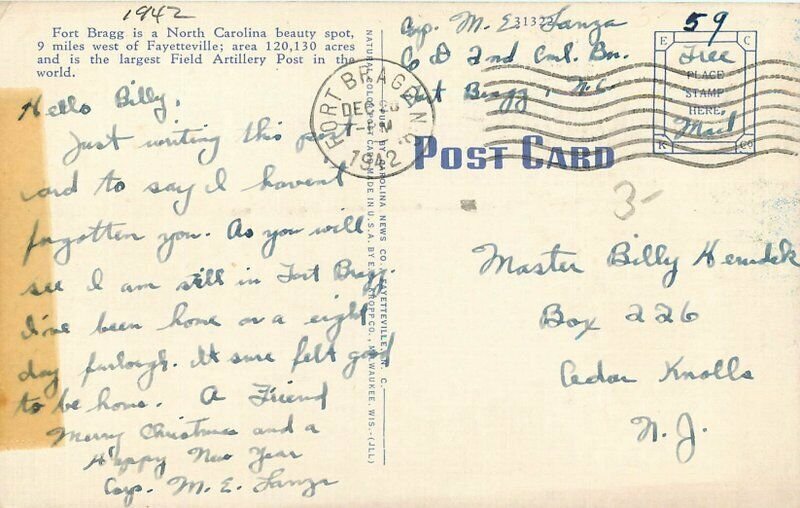 1942
Fort Bragg is a North Carolina beauty spot,
9 miles west of Fayetteville; area 120,130 acres
and is the largest Field Artillery Post in the
world.
Hello Billy,
Just writing this post
card to say I havent
forgotten you. As you will
see I am still in Fort Bragg.
I've been home on a eight
day furlough. It sure felt good
to be home. A Friend
Merry Christmas and a
Happy New Year
Corp. M. E. Lanza
NATURAL COLOR POST CARD MADE IN U.S.A. BY E. C. KROPP CO., MILWAUKEE, WIS.-(JLL)
PUB. BY CAROLINA NEWS CO., FAYETTEVILLE, N. C.
FORT BRAGG, N.C.
DEC
1942
Corp. M. E. Lanza
Co D 2nd Cml. Bn.
Fort Bragg, N.C.
POST CARD
59
E C
Free
PLACE
STAMP
HERE
Mail
K Co
3-
Master Billy
Box 226
Cedar Knolls
N. J.